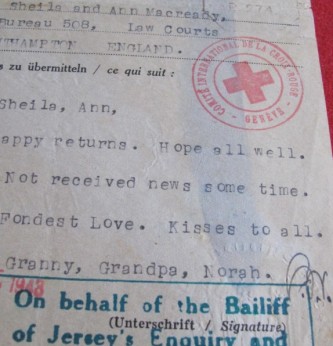 Sheila and Ann Macready,
Bureau 508, Law Courts
THAMPTON ENGLAND.
s zu übermitteln / ce qui suit :
COMITÉ INTERNATIONAL DE LA CROIX-ROUGE
GENÈVE
Sheila, Ann,
appy returns. Hope all well.
Not received news some time.
Fondest Love. Kisses to all.
Granny, Grandpa, Norah.
On behalf of the Bailiff
(Unterschrift / Signature)
of Jersey's Enquiry and